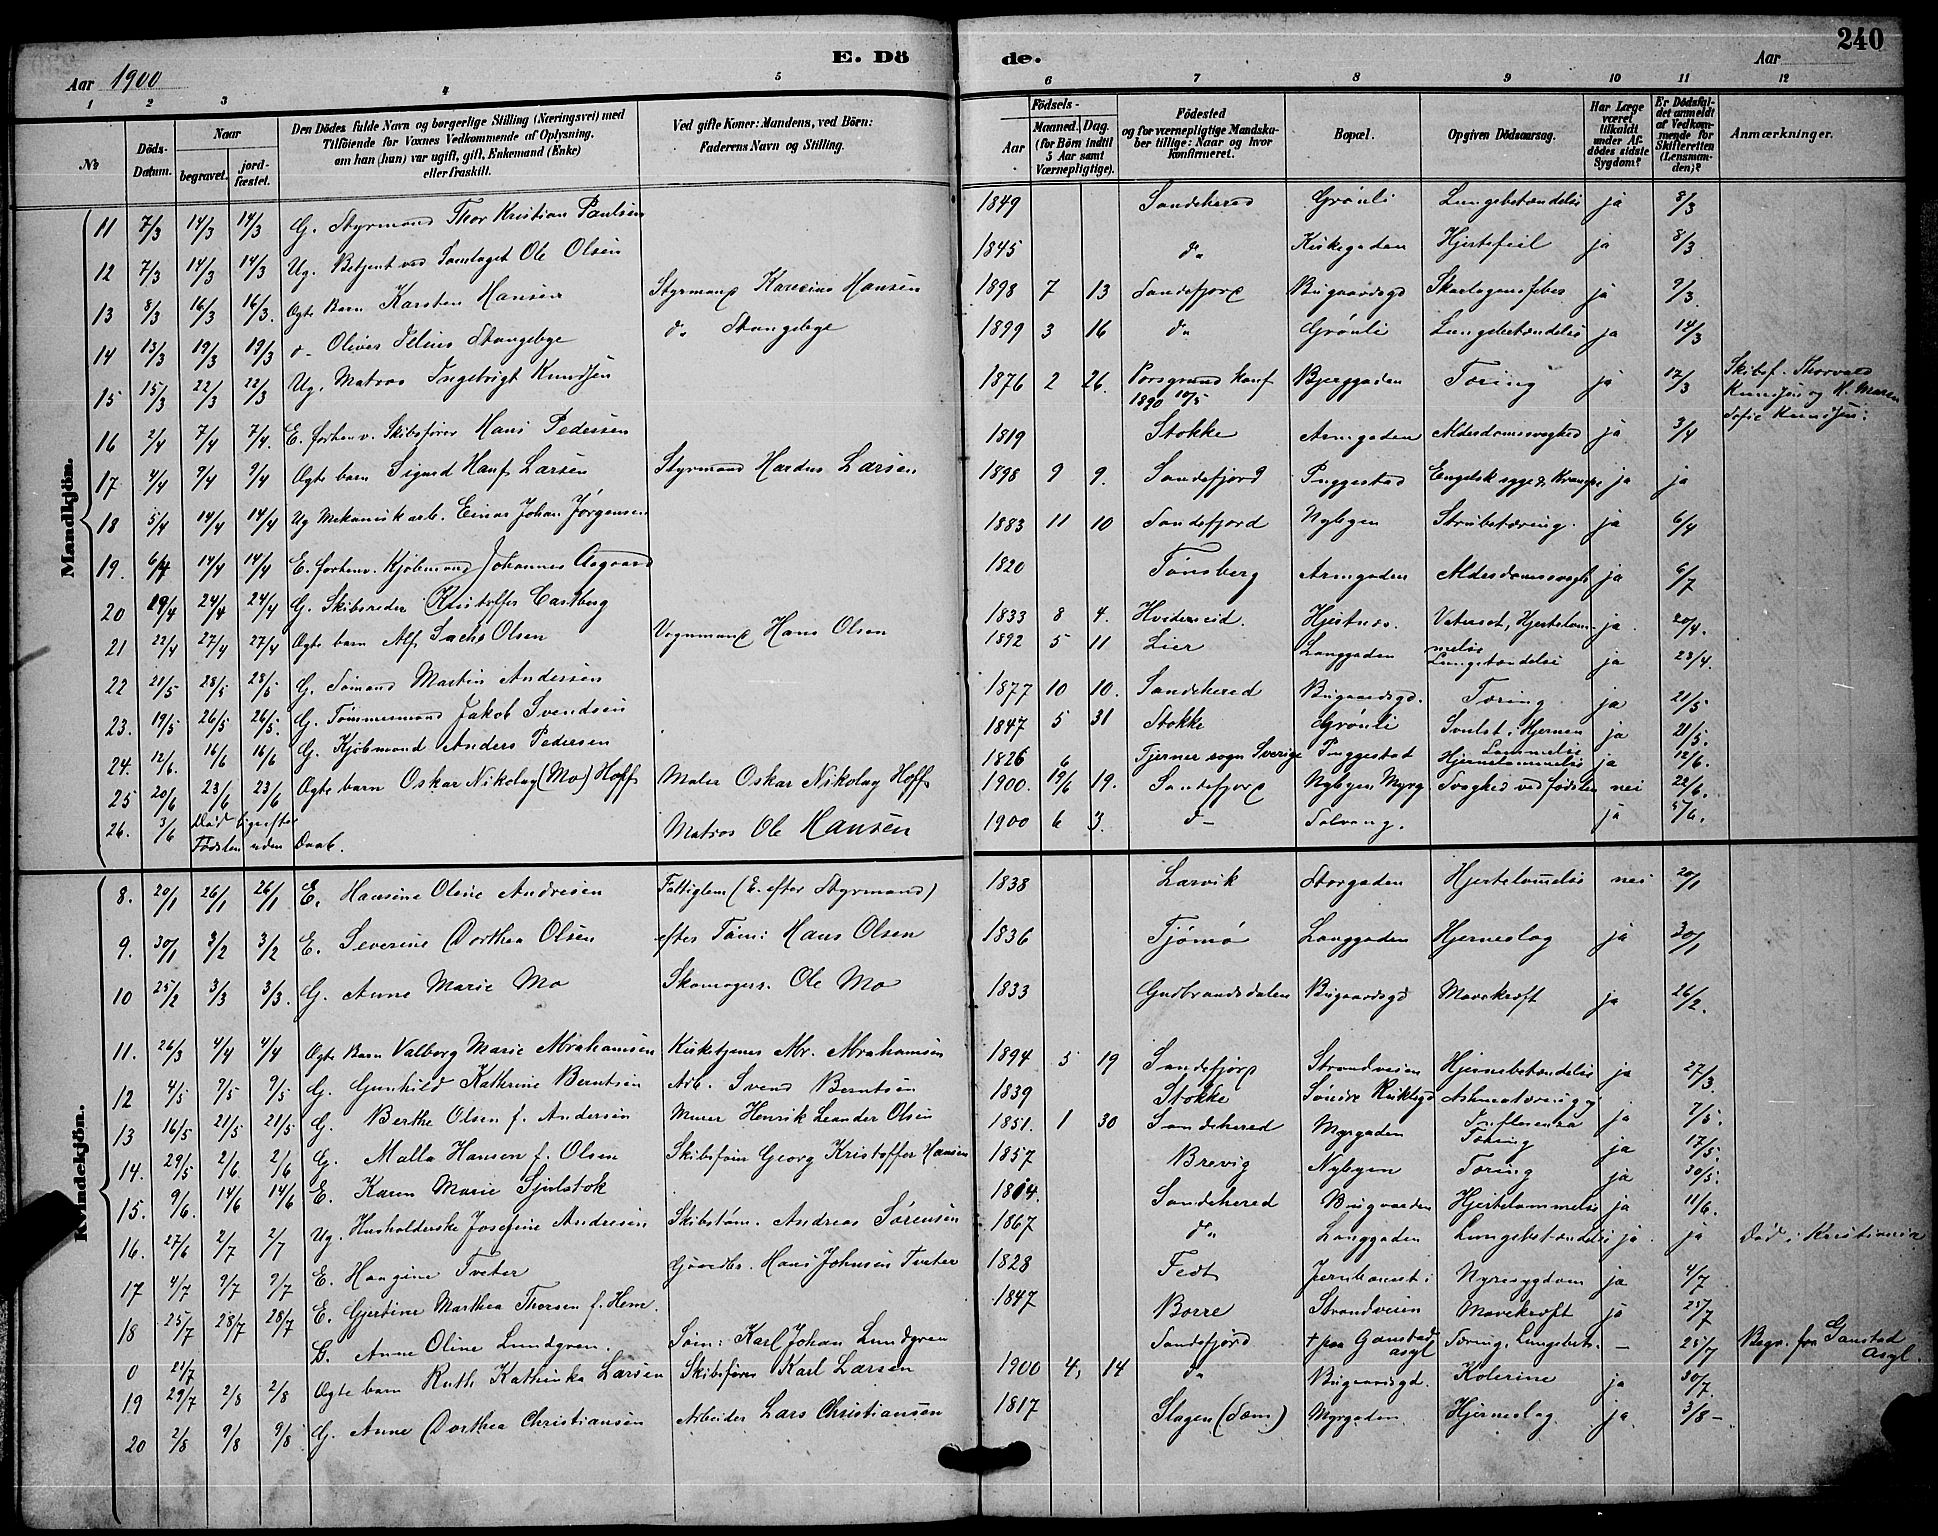 240
E. Döde.
Aar 1900
Aar
1 2 3 4 5 6 7 8 9 10 11 12
№
Döds-Datum.
Naar
begravet.
jordfæstet.
Den Dödes fulde Navn og borgerlige Stilling (Næringsvei) med
Tilföiende for Voxnes Vedkommende af Oplysning,
om han (hun) var ugift, gift, Enkemand (Enke)
eller fraskilt.
Ved gifte Koner: Mandens, ved Börn:
Faderens Navn og Stilling.
Födsels-
Aar
Maaned. Dag.
(for Börn indtil
5 Aar samt
Værnepligtige).
Födested
og for værnepligtige Mandskaber tillige: Naar og hvor
konfirmeret.
Bopæl.
Opgiven Dödsaarsag.
Har Læge
været
tilkaldt
under Afdödes sidste
Sygdom?
Er Dödsfaldet anmeldt
af Vedkommende for
Skifteretten
(Lensmanden)?
Anmærkninger.
Mandkjön.
11 7/3 14/3 14/3 G. Styrmand Thor Kristian Paulsen 1849 Sandeherred Grönli Lungebetændelse ja 8/3
12 7/3 14/3 14/3 Ug. Betjent ved Samlaget Ole Olsen 1845 do Kirkegaden Hjertefeil ja 8/3
13 8/3 16/3 16/3. Ægte Barn Karsten Hansen Styrmand Karesius Hansen 1898 7 13 Sandefjord Bugaardsgd Skarlagensfeber ja 9/3
14 13/3 19/3 19/3 d. Oliver Stangebye do Stangebye 1899 3 16 do Grönli Lungebetændelse ja 14/3
15 15/3 22/3 22/3 Ug. Matros Ingebrigt Knudsen 1876 2 26. Porsgrund konf 1890 10/5 Bjerggaden Tæring ja 17/3 Skibsf. Thorvald Knudsen og H. Maren Sofie Knudsen.
16 2/4 7/4 7/4. E. forhenv. Skibsfører Hans Pedersen 1819 Stokke Aremgaden Alderdomssvaghed ja 3/4
17 4/4 9/4 9/4 Ægte barn Sigurd Hanf Larsen Styrmand Hardus Larsen 1898 9 9. Sandefjord Puggestad Engelsk syge & Krampe ja ja
18 5/4 14/4 14/4 Ug Mekanisk arb. Einar Johan Jörgensen 1883 11 10 Sandefjord Nybyen Strubetæring. ja 6/4
19. 6/4 14/4 14/4 E. forhenv. Kjöbmand Johannes Aagaard 1820 Tönsberg Aremgaden Alderdomssvagh ja 6/7
20 19/4 24/4 24/4 G. Skibsreder Kristoffer Castberg 1833 8 4. Hvideseid. Hjertnæs. Vatersot, Hjertelammelse ja. 20/4.
21 22/4 27/4 27/4 Ægte barn Alf Sachs Olsen Vognmand Hans Olsen 1892 5 11 Lier Langgaden Lungebetændelse ja 23/4.
22 21/5 28/5 28/5 G. Sömand Martin Andersen 1877 10 10. Sandeherred Bugaardsgd. Tæring ja 21/5
23. 19/5 26/5 26/5. G. Tömmermand Jakob Svendsen 1847 5 31 Stokke Grönli Svulst i Hjernen ja 21/5.
24. 12/6. 16/6 16/6 G. Kjöbmand Anders Pedersen 1826 6 Tjerner sogn Sverige Puggestad Hjertelammelse ja 12/6.
25 20/6 23/6 23/6 Ægte barn Oskar Nikolay (Mo) Hoff Maler Oskar Nikolay Hoff 1900. 19/6 19. Sandefjord Nybyen Myrg Svaghed ved födslen nei 22/6.
26. 3/6 Död lige efter Födslen uden Daab. Matros Ole Hansen 1900 6 3. d- Solvang. ja 5/6.
Kvindekjön.
8. 20/1 26/1 26/1 E. Hansine Olsine Andresen Fattiglem (E. efter Styrmand) 1838 Larvik Storgaden Hjertelammelse nei 20/1
9. 30/1 3/2 3/2 E. Severine Dorthea Olsen efter Töm: Hans Olsen 1836 Tjömö Langgaden Hjerneslag ja 30/1
10 25/2 3/3 3/3. G. Anne Marie Mo Skomagers. Ole Mo 1833 Gudbrandsdalen Bugaardsgd Mavekræft ja 26/2.
11. 26/3 4/4 4/4 Ægte Barn Valborg Marie Abrahamsen Kirketjener Abr. Abrahamsen 1894 5 19 Sandefjord Strandveien Hjernebetændelse ja 27/3.
12 4/5 9/5 9/5 G. Gunhild Kathrine Berntsen Arb. Svend Berntsen 1839 Stokke Söndre Kirkegd Influenza ja 7/5.
13 16/5 21/5 21/5 G. Berthe Olsen f. Andersen Murer Henrik Leander Olsen 1851. 1 30 Sandeherred Myrgaden Tæring ja 17/5.
14. 29/5 2/6 2/6 G. Malla Hansen f. Olsen Skibsförer Georg Kristoffer Hansen 1857 Brevig Nybyen Tæring ja 30/5.
15. 9/6. 14/6 14/6 E. Karen Marie Sjulstok 1814. Sandeherred Bugaarden Hjertelammelse ja 11/6.
16. 27/6 2/7 2/7 Ug. Husholderske Josefine Andresen Skibstöm. Andreas Sörensen 1867 do Langgaden Lungebetændelse ja. ja Död i Kristiania.
17 4/7 9/7 9/7 E. Hangine Tveter Gaardbr. Hans Johnsen Tveter 1828 Fedt Jernbanest: Nyresygdom ja 4/7
18 25/7 28/7 28/7 E. Gjertine Marthea Thorsen f. Hem. 1847 Borre Strandveien Mavekræft ja 25/7
0 21/7 G. Anne Oline Lundgren. Söm: Karl Johan Lundgren Sandefjord † paa Gaustad asyl Tæring, Lungebet. — 25/7 Begr. fra Gaustad Asyl.
19 29/7 2/8 2/8 Ægte barn Ruth Kathinka Larsen Skibsförer Karl Larsen 1900 4, 14 do Bugaardsgd. Kolerine ja 30/7.
20 2/8 9/8 9/8. G. Anne Dorthea Christiansen Arbeider Lars Christiansen 1817 Slagen (Sem) Myrgaden. Hjerneslag. ja. 3/8-